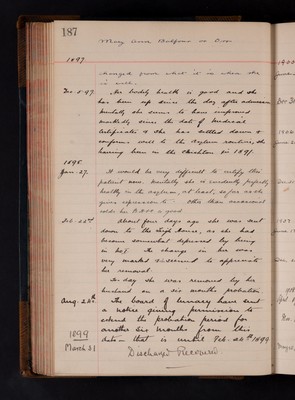 187
Mary Ann Balfour or Orr
1897
changed from what it is when she
is well.
Dec. 5. 97. Her bodily health is good and she
has been up since the day after admission
Mentally she seems to have improved
markedly since the date of medical
Certificates & she has settled down &
conforms well to the asylum routine, she
having been in the in 1891.
1898.
Jany. 27. It would be very difficult to certify this
patient now. Mentally she is evidently perfectly
healthy in the asylum, at least, so far as she
gives expression to. Other than occasional
colds her B.H. is good
Feb. 22nd About four days ago she was sent
down to the High House, as she had
become somewhat depressed by being
in The change in her was
very marked & seemed to appreciate
her removal.
To-day she was removed by her
husband on a six months probation
Aug. 28th The board of lunacy have sent
a notice giving permission to
extend the probation period for
another six months from this
date — that is until Feb. 24th 1899
1899
March 31 Discharged Recovered